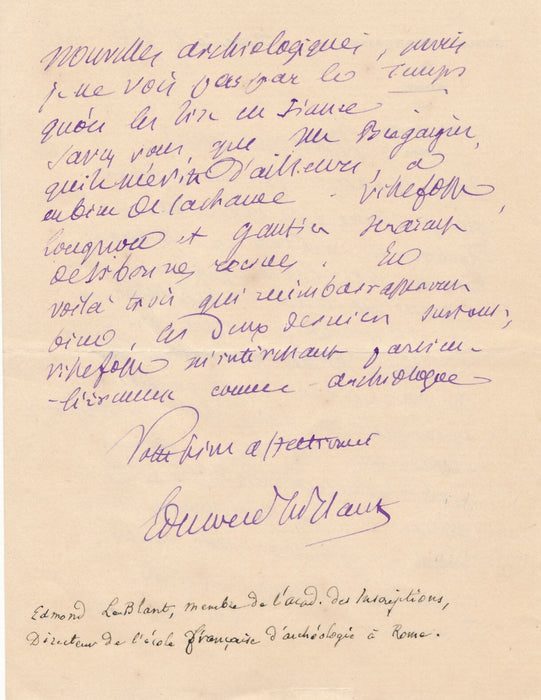 nouvelles archéologiques, mais
je ne vois pas par le Temps
qu'on les lise en France
Savez vous, que M. Bergaigne,
qui le mérite d'ailleurs, a
eu bien de la chance - Villefosse,
Longnon et Gautier seraient
de très bonnes recrues. En
voilà trois qui m'embarrasseront
bien, les deux derniers surtout,
Villefosse m'intéressant particu-
-lièrement comme archéologue
Votre bien affectionné
Edmond Le Blant
Edmond LeBlant, membre de l'acad. des Inscriptions,
Directeur de l'école française d'archéologie à Rome.